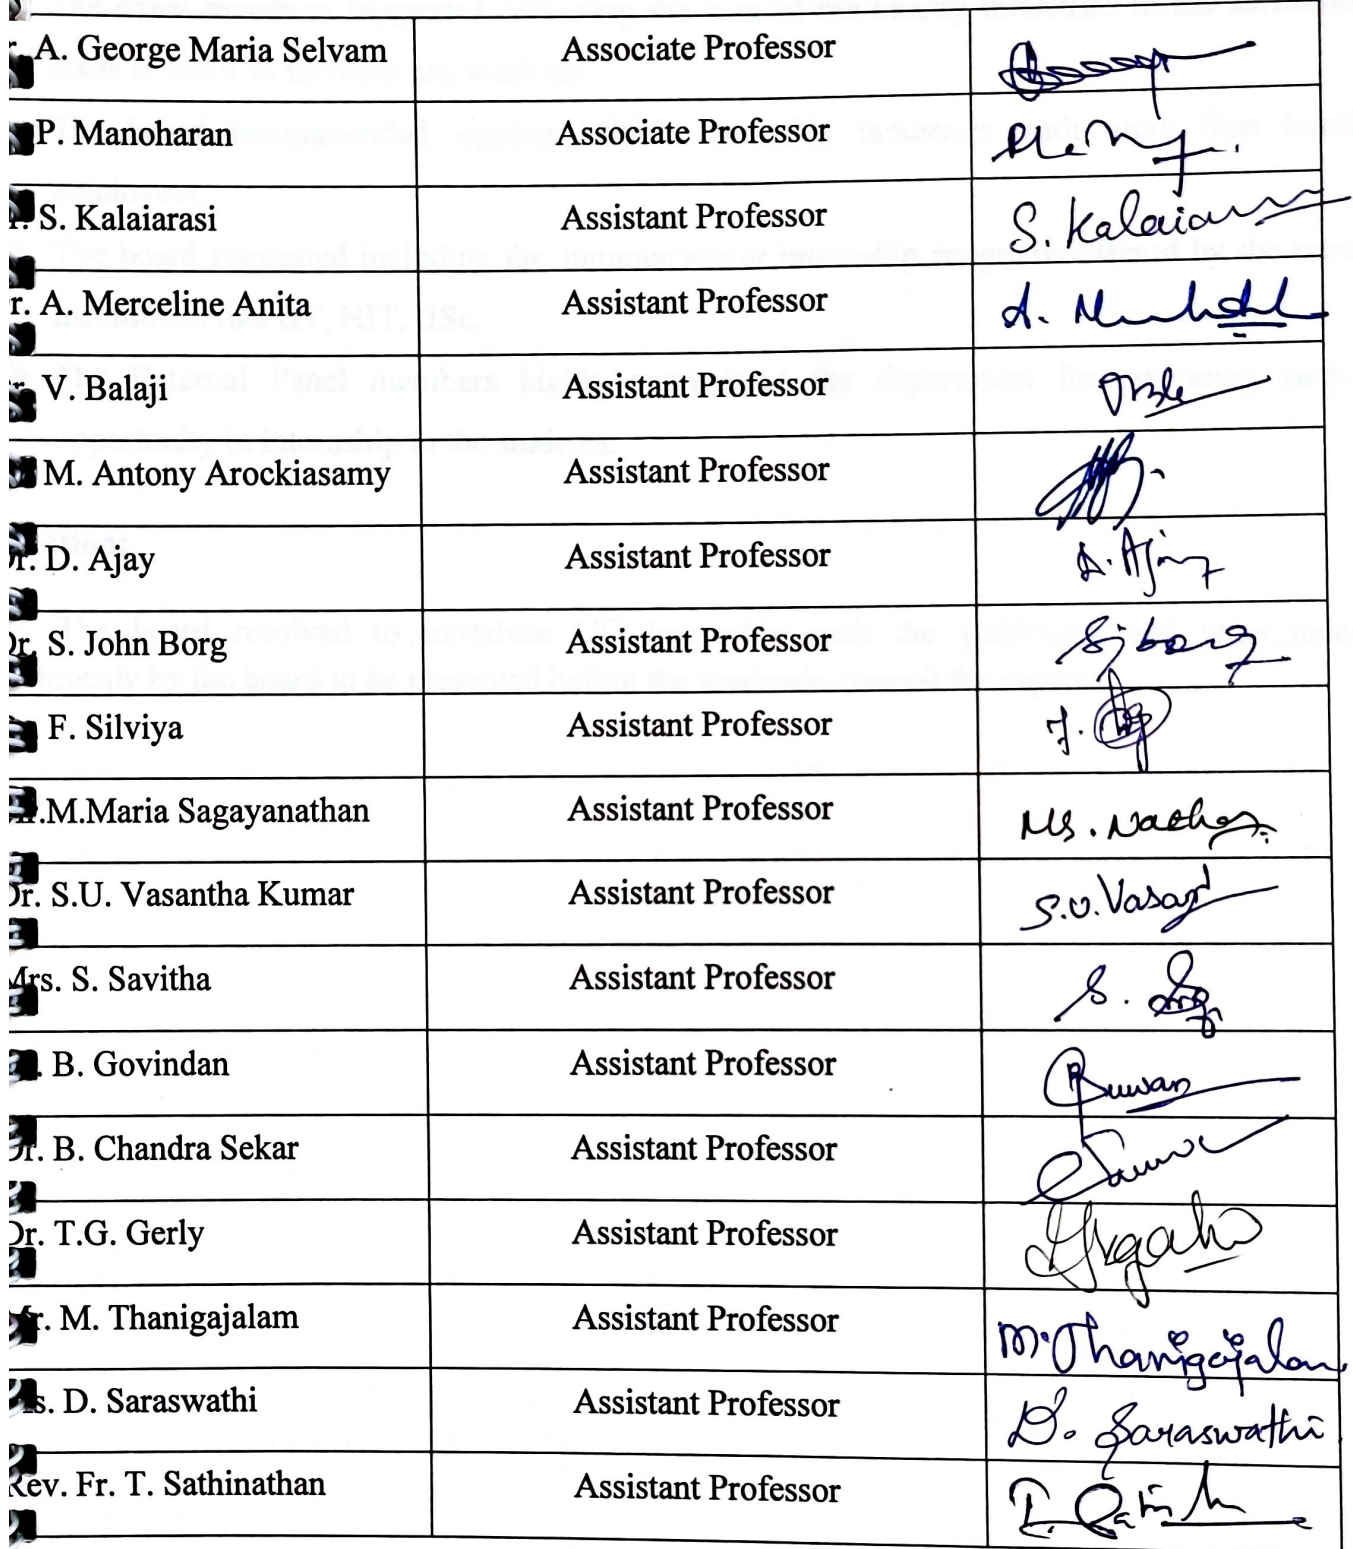 r. A. George Maria Selvam Associate Professor
P. Manoharan Associate Professor
S. Kalaiarasi Assistant Professor S. Kalaiarasi
r. A. Merceline Anita Assistant Professor A.
V. Balaji Assistant Professor
M. Antony Arockiasamy Assistant Professor
Dr. D. Ajay Assistant Professor D. Ajay
Dr. S. John Borg Assistant Professor Sjborg
F. Silviya Assistant Professor F.
.M.Maria Sagayanathan Assistant Professor MS. Nathan
Dr. S.U. Vasantha Kumar Assistant Professor S.U. Vasant
Mrs. S. Savitha Assistant Professor S.
B. Govindan Assistant Professor
Dr. B. Chandra Sekar Assistant Professor
Dr. T.G. Gerly Assistant Professor
Mr. M. Thanigajalam Assistant Professor M. Thanigajalam
s. D. Saraswathi Assistant Professor D. Saraswathi
Rev. Fr. T. Sathinathan Assistant Professor